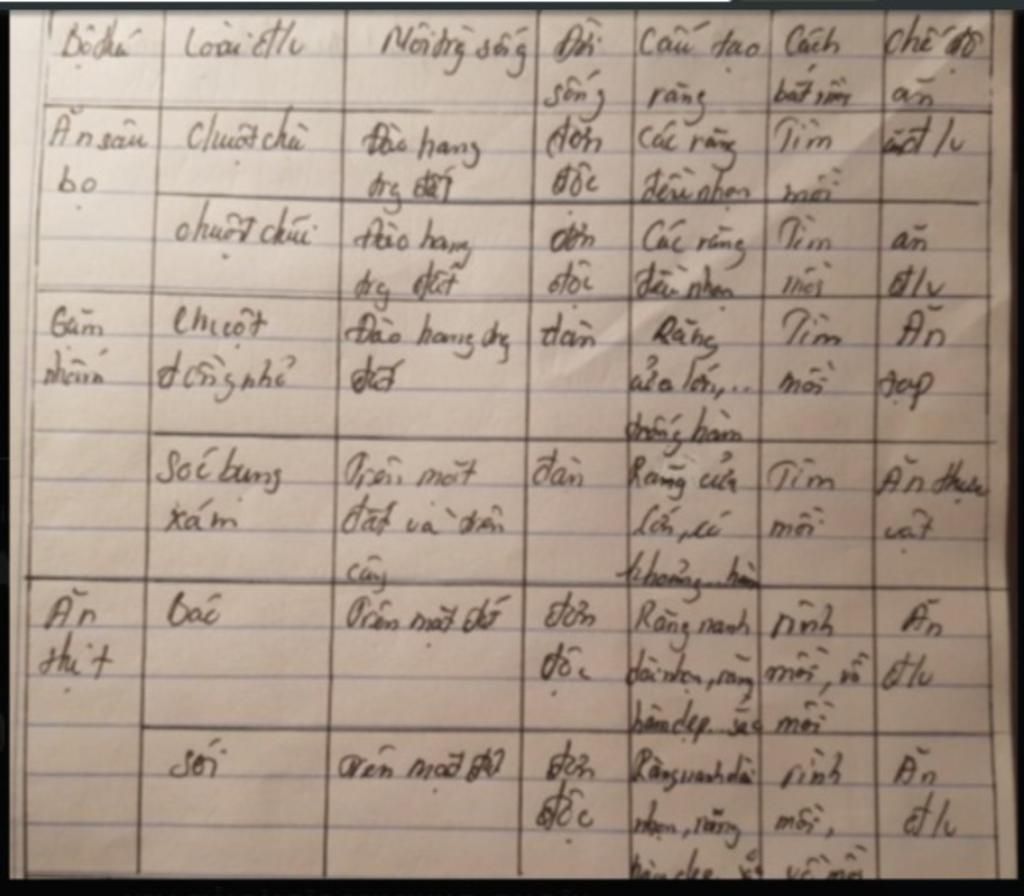 Bộ thú Loài đ/v Môi trg sống Đời Cấu tạo Cách Chế độ
sống răng bắt mồi ăn
Ăn sâu Chuột chù Đào hang đơn Các răng Tìm ăn đ/v
bọ trg đất độc đều nhọn mồi
chuột chũi Đào hang đơn Các răng Tìm ăn
trg đất độc đều nhọn mồi đ/v
Gặm Chuột Đào hang trg đàn Răng Tìm Ăn
nhấm đồng nhỏ đất cửa lớn,... mồi tạp
trống hàm
Sóc bụng Trên mặt đàn Răng cửa Tìm Ăn thực
xám đất và trên lớn, có mồi vật
cây khoảng...hàm
Ăn Báo Trên mặt đất đơn Răng nanh rình Ăn
thịt độc dài nhọn, răng mồi, vồ đ/v
hàm dẹp...sắc mồi
Sói Trên mặt đất đơn Răng nanh dài rình Ăn
độc nhọn, răng mồi, đ/v
hàm dẹp vồ mồi